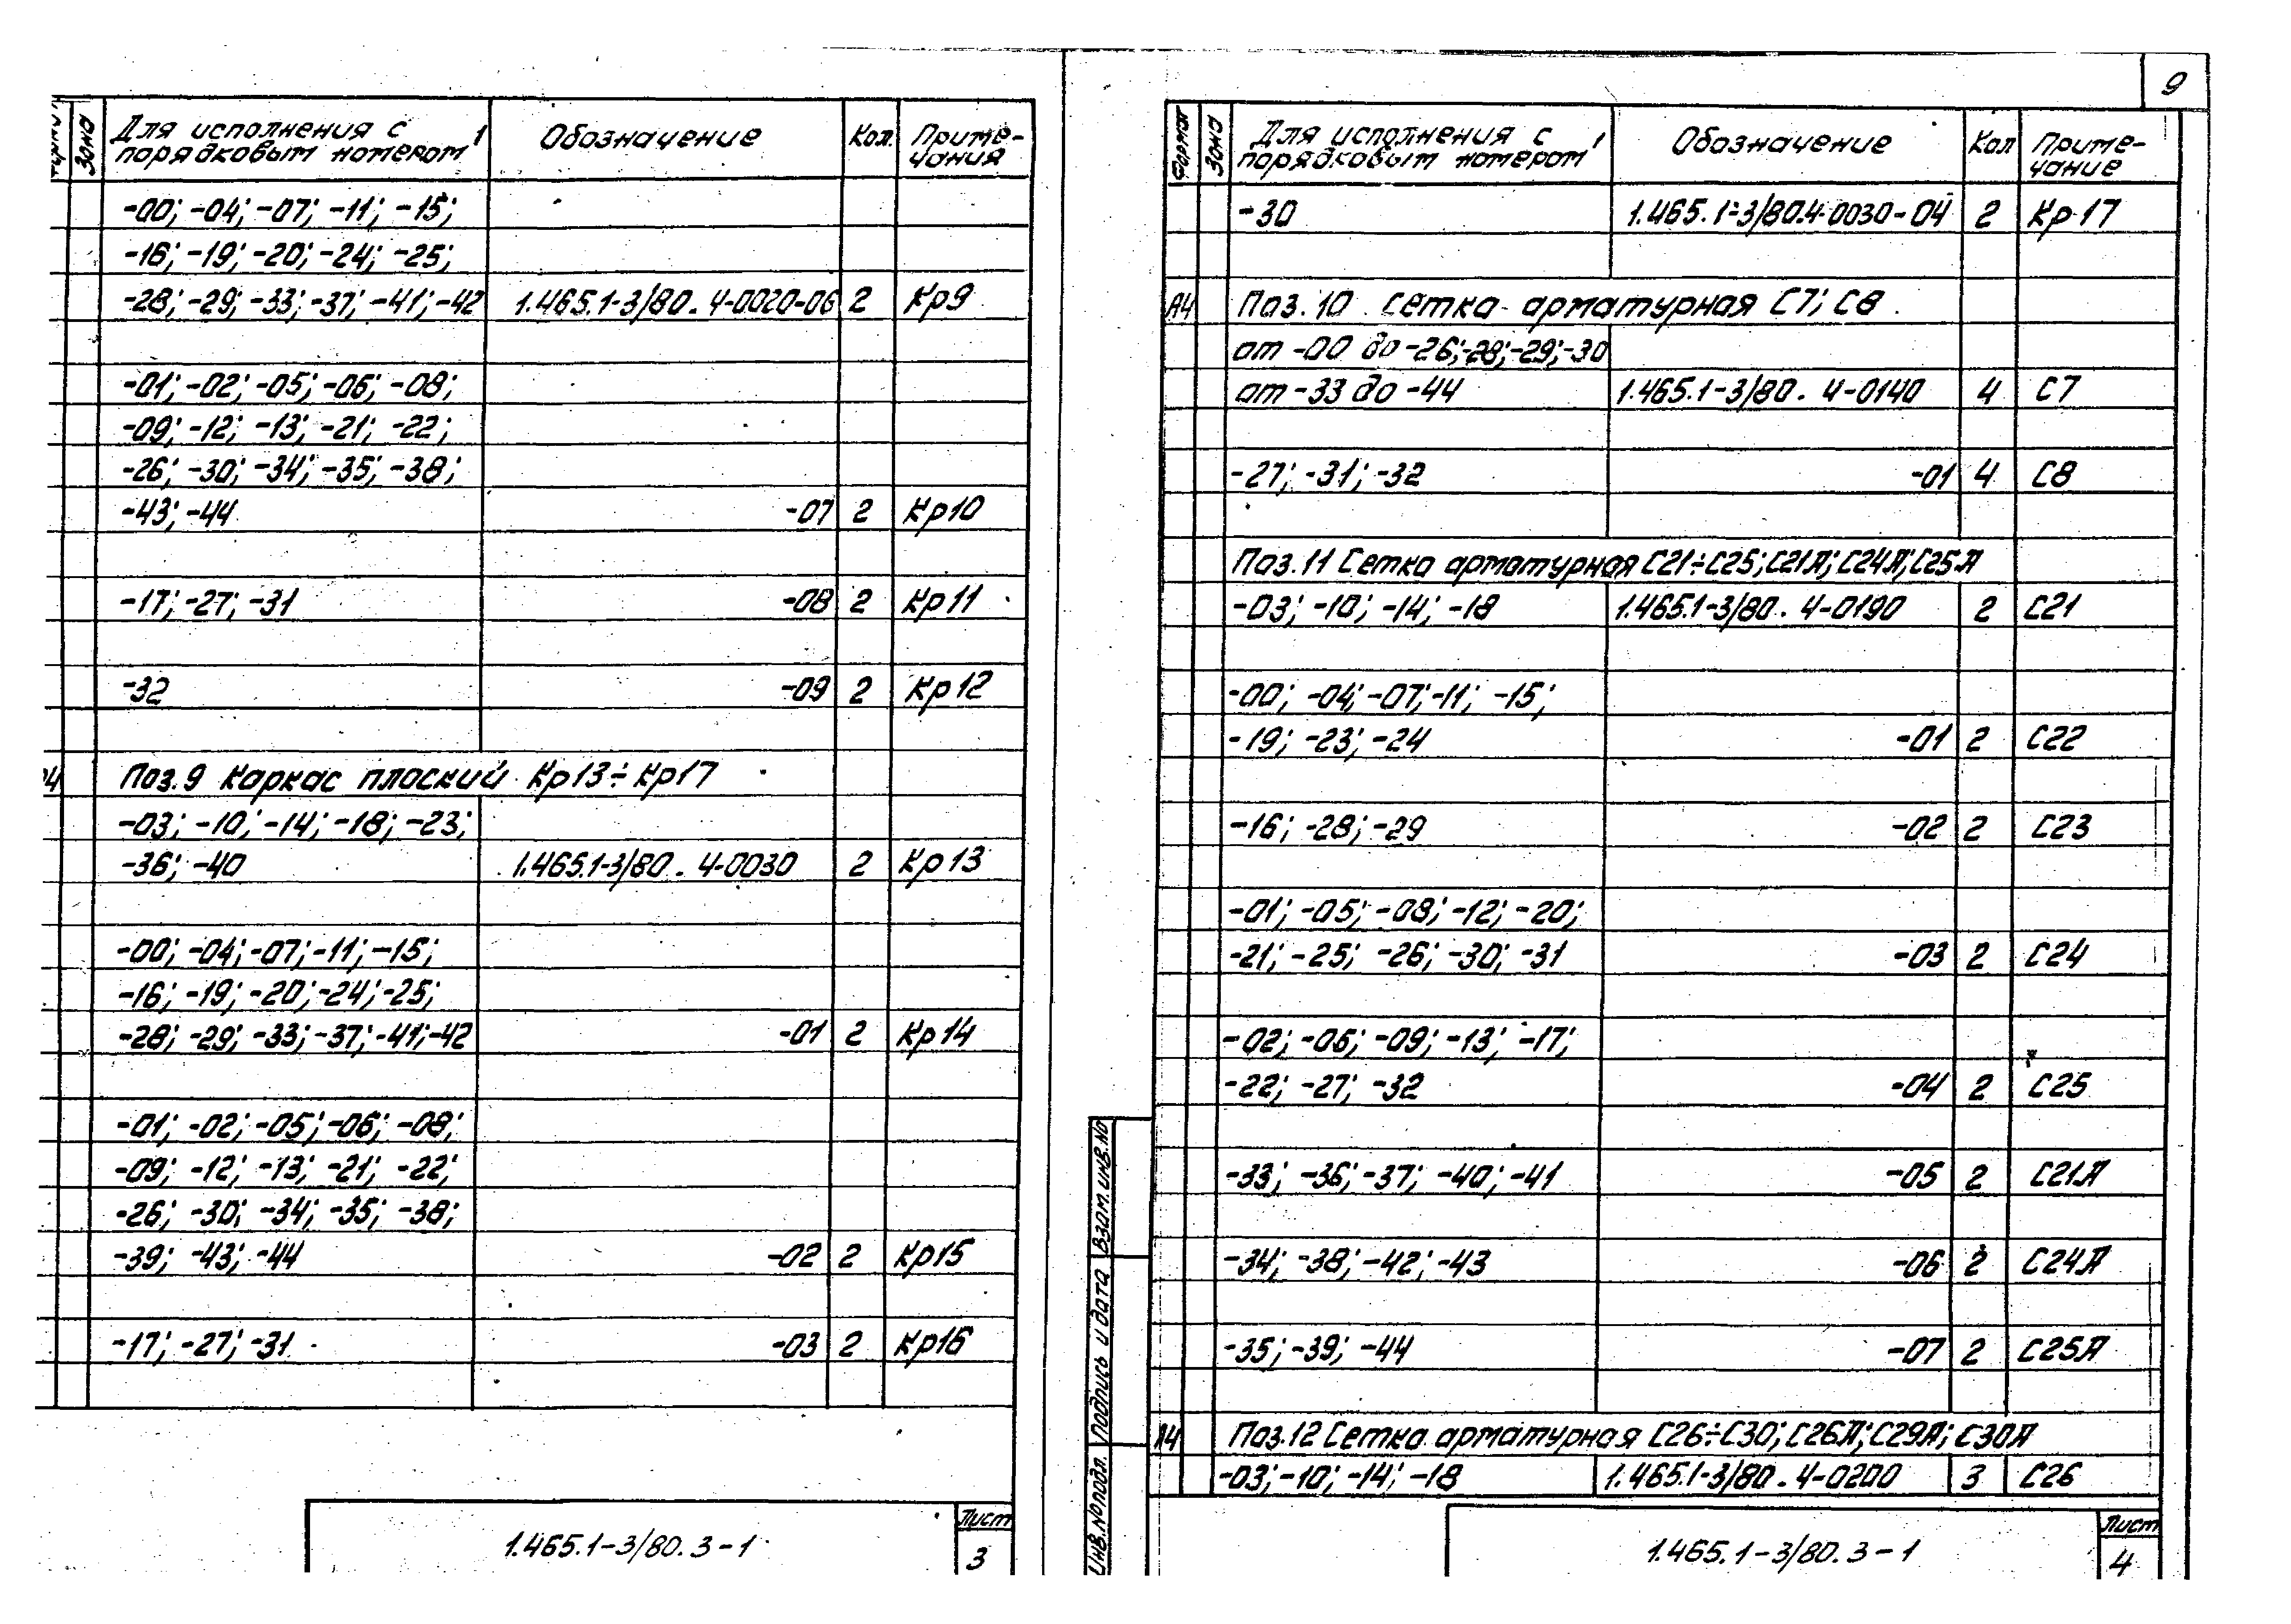 Зона
Для исполнения с
порядковым номером¹
Обозначение
Кол.
Приме-
чания
-00; -04; -07; -11; -15;
-16; -19; -20; -24; -25;
-28; -29; -33; -37; -41; -42 1.465.1-3/80. 4-0020-06 2 Кр9
-01; -02; -05; -06; -08;
-09; -12; -13; -21; -22;
-26; -30; -34; -35; -38;
-43; -44 -07 2 Кр10
-17; -27; -31 -08 2 Кр11
-32 -09 2 Кр12
Поз.9 Каркас плоский Кр13÷Кр17
-03; -10; -14; -18; -23;
-36; -40 1.465.1-3/80. 4-0030 2 Кр13
-00; -04; -07; -11; -15;
-16; -19; -20; -24; -25;
-28; -29; -33; -37; -41; -42 -01 2 Кр14
-01; -02; -05; -06; -08;
-09; -12; -13; -21; -22;
-26; -30; -34; -35; -38;
-39; -43; -44 -02 2 Кр15
-17; -27; -31 -03 2 Кр16
1.465.1-3/80. 3-1
Лист
3
9
Формат
Зона
Для исполнения с
порядковым номером¹
Обозначение
Кол
Приме-
чание
-30 1.465.1-3/80.4-0030-04 2 Кр17
А4 Поз.10 Сетка арматурная С7; С8
от -00 до -26; -28; -29; -30
от -33 до -44 1.465.1-3/80. 4-0140 4 С7
-27; -31; -32 -01 4 С8
Поз.11 Сетка арматурная С21÷С25; С21Л; С24Л; С25Л
-03; -10; -14; -18 1.465.1-3/80. 4-0190 2 С21
-00; -04; -07; -11; -15;
-19; -23; -24 -01 2 С22
-16; -28; -29 -02 2 С23
-01; -05; -08; -12; -20;
-21; -25; -26; -30; -31 -03 2 С24
-02; -06; -09; -13; -17;
-22; -27; -32 -04 2 С25
-33; -36; -37; -40; -41 -05 2 С21Л
-34; -38; -42; -43 -06 2 С24Л
-35; -39; -44 -07 2 С25Л
А4 Поз.12 Сетка арматурная С26÷С30; С26Л; С29Л; С30Л
-03; -10; -14; -18 1.465.1-3/80. 4-0200 3 С26
Взам.инв.№
Подпись и дата
Инв.№подл.
1.465.1-3/80. 3-1
Лист
4